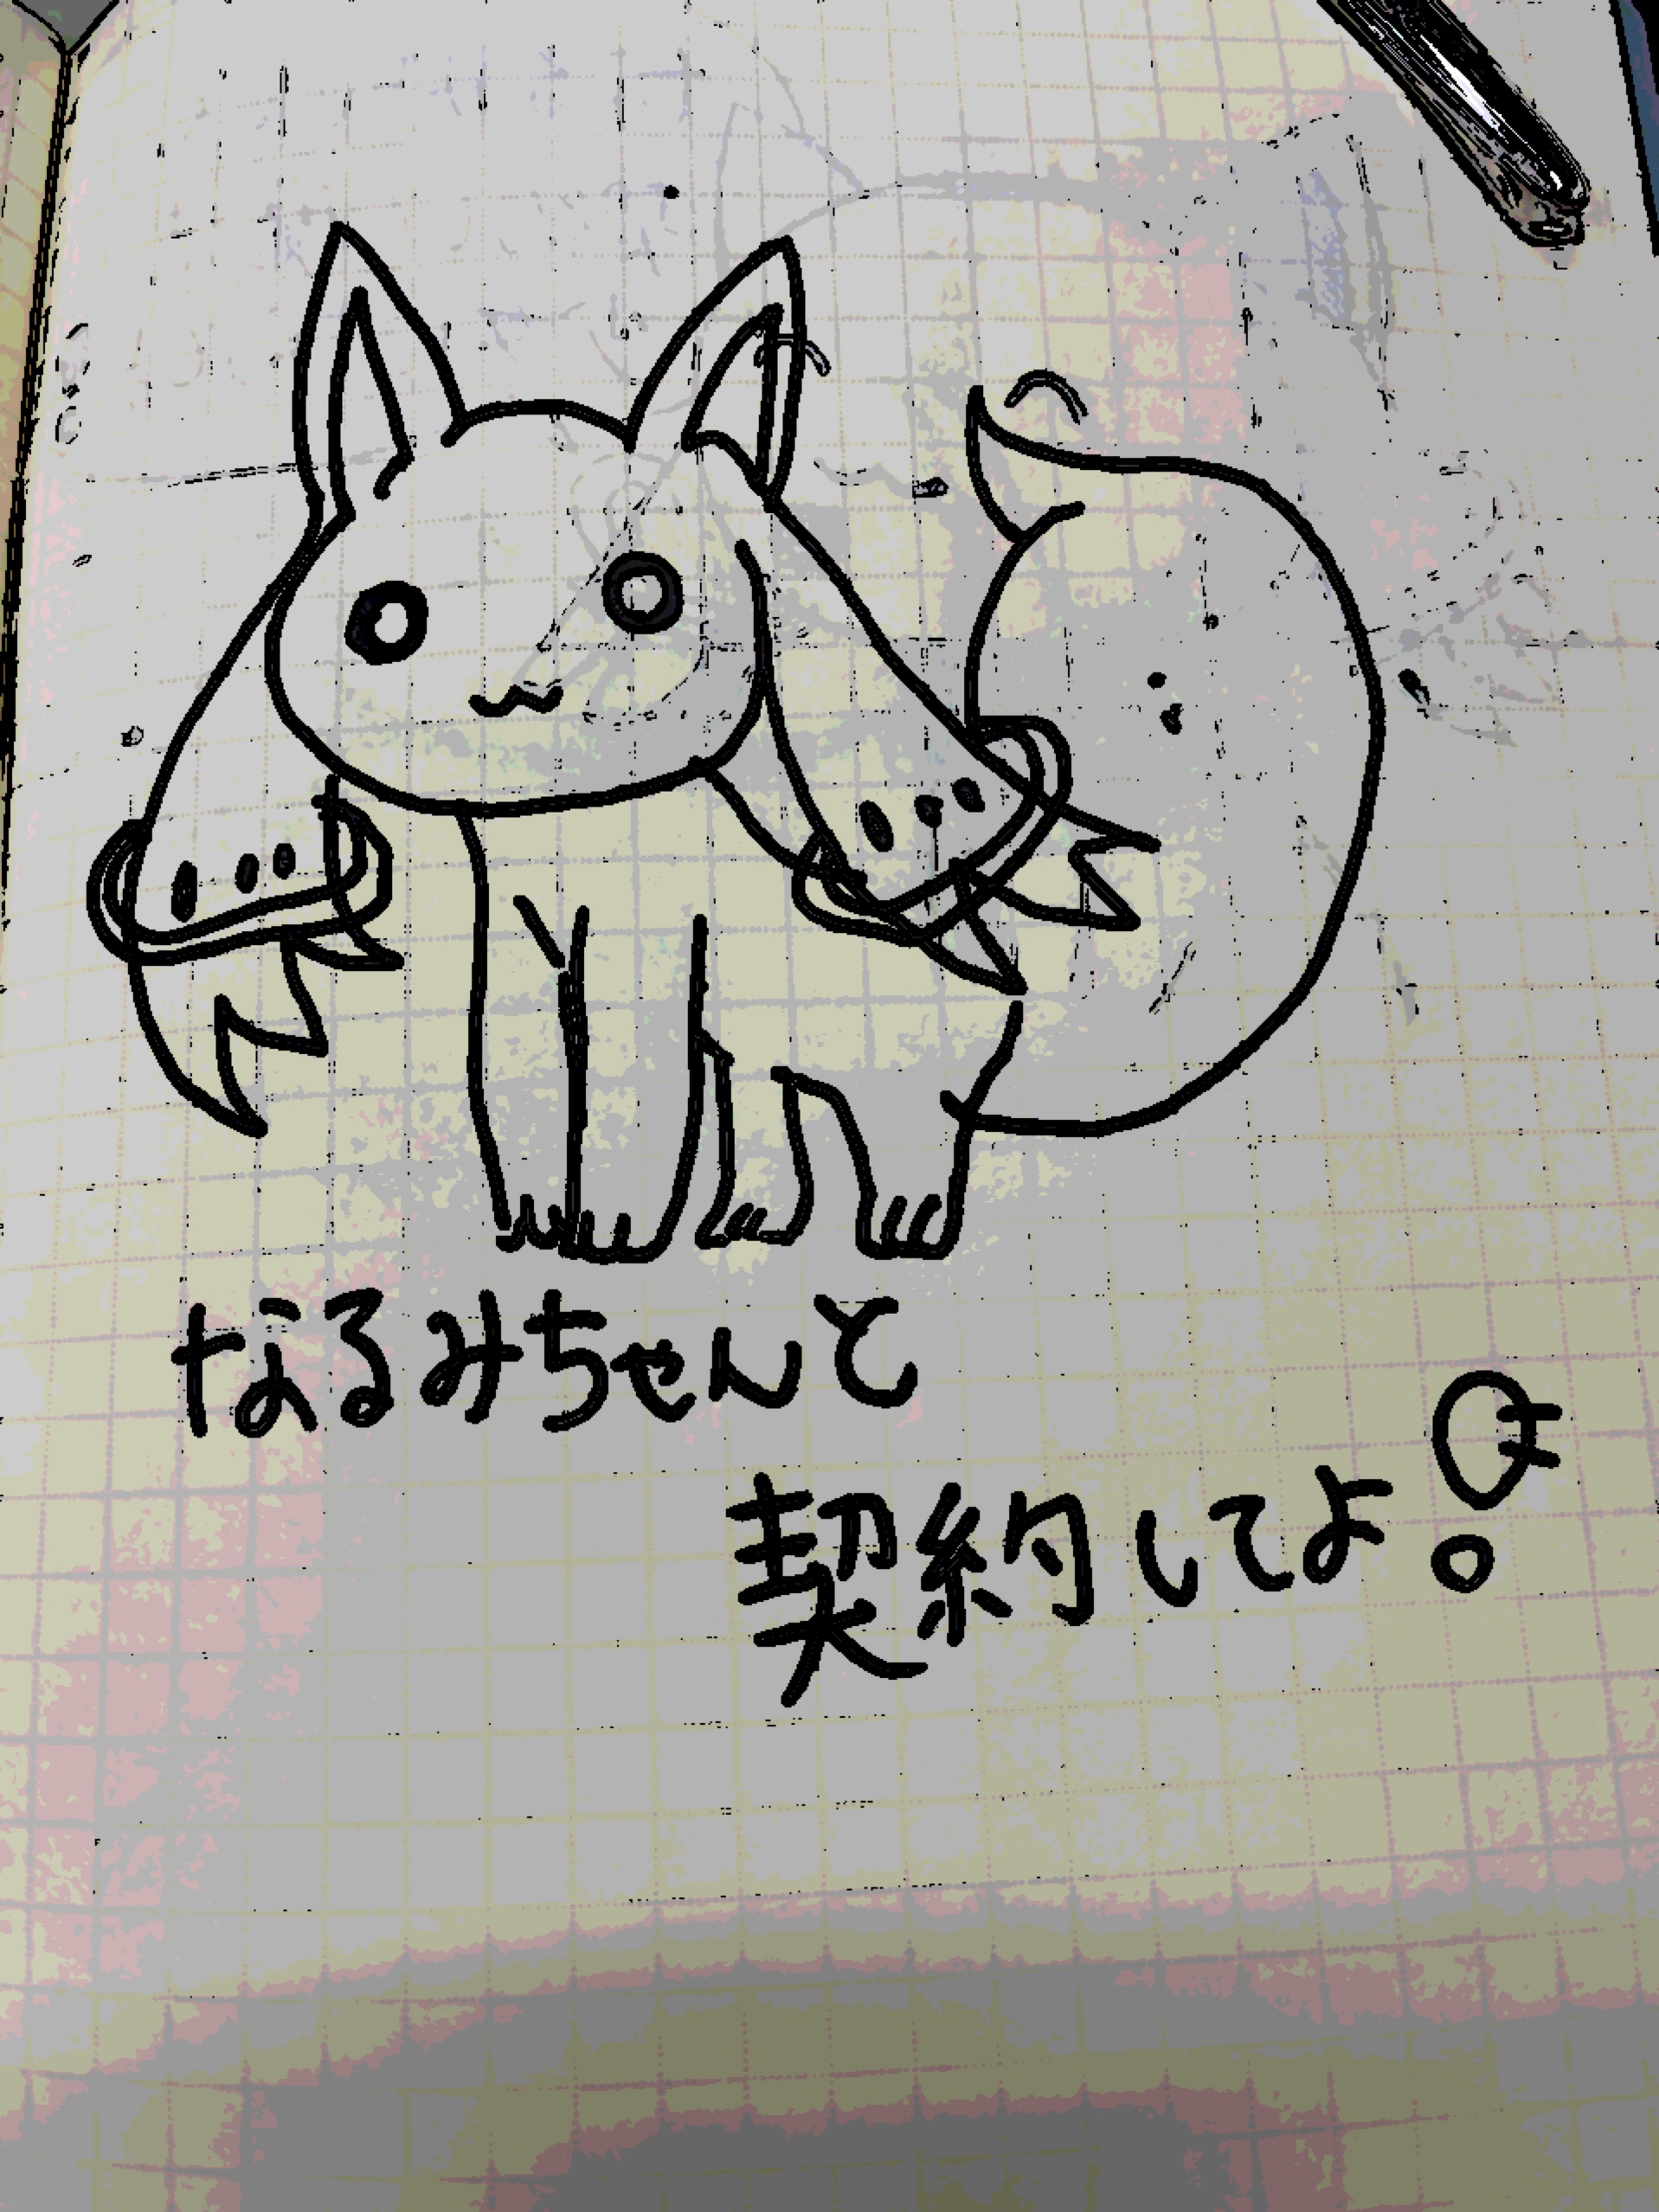 なるみちゃんと
契約してよ。